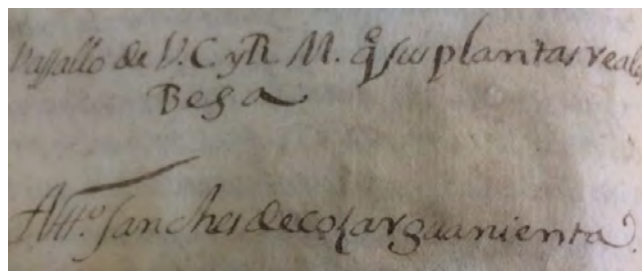 Vassallo de V. C. y R. M. q̃ sus plantas reales
Besa
Antt.º Sanches de cozar guanienta